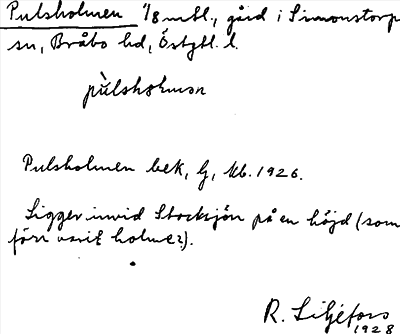 Pulsholmen 1/8 mtl., gård i Simonstorp
sn, Bråbo hd, Östgtl. l.
pùlshɔlmən
Pulsholmen bek, G, kb. 1926.
Ligger invid Stocksjön på en höjd (som
förr varit holme?).
R. Liljefors
1928